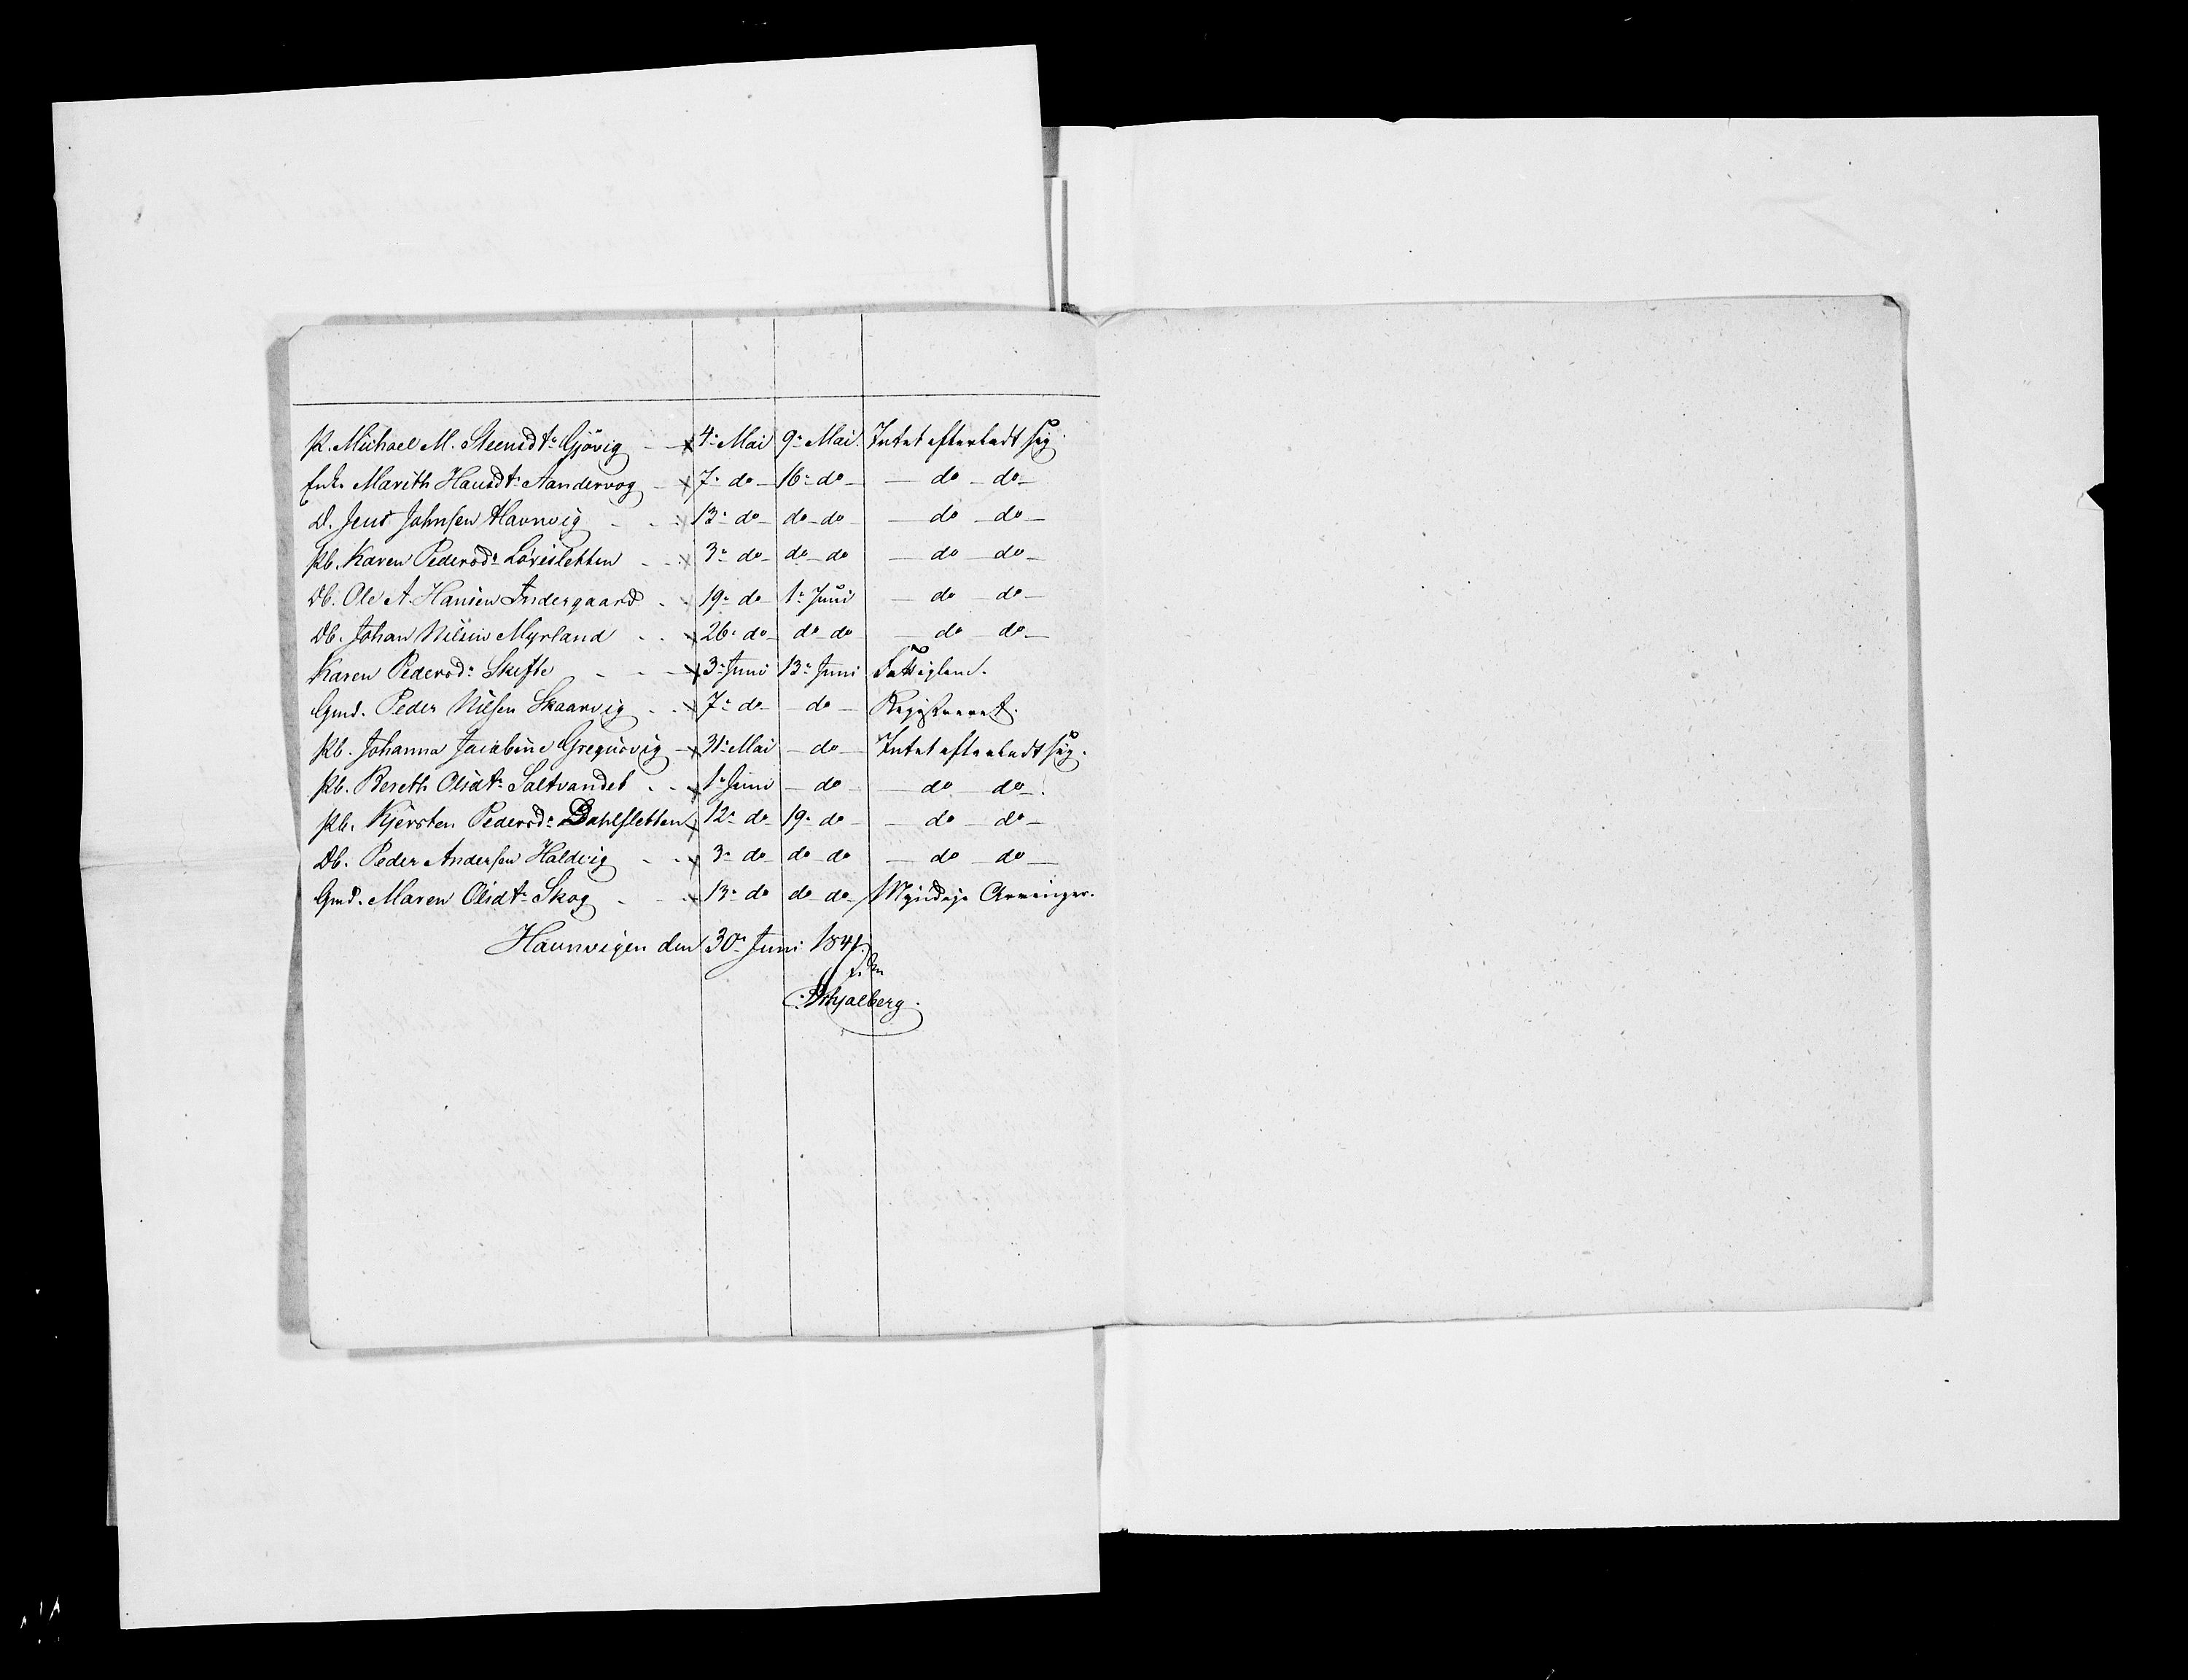 K. Michael M. Steensdtr Gjövig - x 4de Mai 9de Mai. Intet efterladt sig.
Enke Marith Hansdtr Aandervog - x 7de do - 16de do - - do - do -
D. Jens Johnsen Havnvig - - x 13de do - do - do - - do - do -
Pb. Karen Pedersdr Löveisletten - - x 3de do - do - do - do - do -
Db. Ole A. Hansen Indergaard - - 19de do - 1ste Juni - do - do -
Db. Johan Nilsen Myrland - - x 26de do - do - do - do - do -
Karen Pedersdr Skefte - - x 3de Juni 13de Juni Fattiglem.
Gmd. Peder Nilsen Skaarvig - - x 7de do - - do - Registreret.
Pb. Johanna Jacobine Gregusvig - x 31te Mai - do - Intet efterladt sig.
Pb. Bereth Olsdtr Saltvandet - - x 1ste Juni - do - - do - do -
Pb. Kjersten Pedersdr Dahlsletten x 12te do - 19de do - - do - do -
Db. Peder Andersen Haldvig - - x 3de do - do - do - do - do -
Gmd. Maren Olsdtr Skog - - x 13de do do - do - Myndige Arvinger.
Haunvigen den 30te Juni 1841.
Schjalberg.